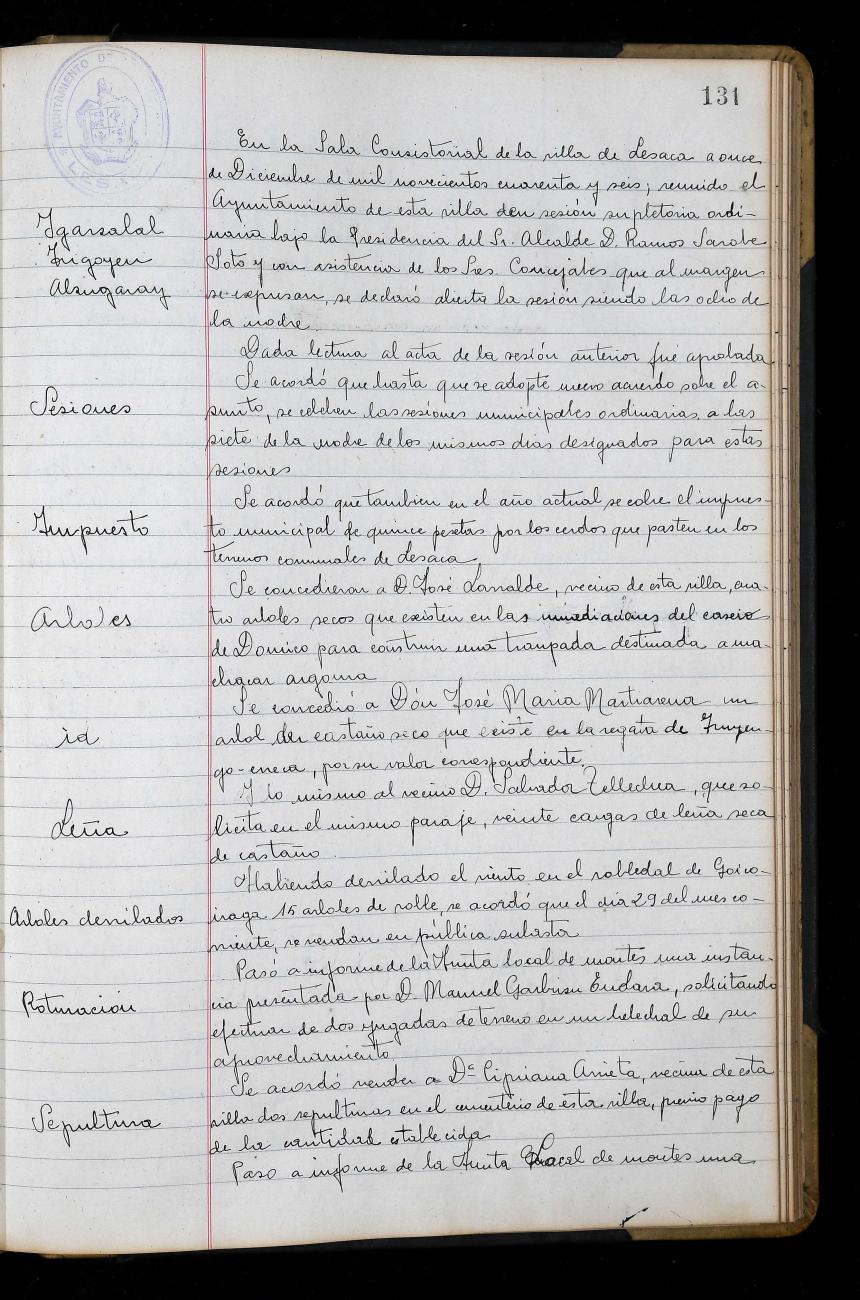 131
AYUNTAMIENTO DE
LES
En la Sala Consistorial de la villa de Lesaca a once
de Diciembre de mil novecientos cuarenta y seis; reunido el
Ayuntamiento de esta villa den sesión supletoria ordi-
Igarzabal
naria bajo la Presidencia del Sr. Alcalde D. Ramos Sarobe
Irigoyen
Soto y con asistencia de los Sres. Concejales que al margen
Alzugaray
se expresan, se declaró abierta la sesión siendo las ocho de
la noche.
Dada lectura al acta de la sesión anterior fué aprobada
Se acordó que hasta que se adopte nuevo acuerdo sobre el a-
Sesiones
sunto, se celebren las sesiones municipales ordinarias a las
siete de la noche de los mismos dias designados para estas
sesiones
Se acordó que tambien en el año actual se cobre el impues-
Impuesto
to municipal de quince pesetas por los cerdos que pasten en los
terrenos comunales de Lesaca.
Se concedieron a D. José Larralde, vecino de esta villa, cua-
Arboles
tro arboles secos que existen en las inmediaciones del caserio
de Domico para construir una trampada destinada a ma-
chacar argoma
Se concedió a Dón José Maria Martiarena un
id
arbol den castaño seco que existe en la regata de
go-eneca, por su valor correspondiente.
Y lo mismo al vecino D. Salvador Tellechea, que so-
Leña
licita en el mismo paraje, veinte cargas de leña seca
de castaño.
Habiendo derribado el viento en el robledal de Goico-
Arboles derribados
iraga 15 arboles de roble, se acordó que el dia 29 del mes co-
rriente, se vendan en pública subasta
Pasó a informe de la Junta local de montes una instan-
Roturación
cia presentada por D. Manuel Garbisu Endara, solicitando
efectuar de dos yugadas de terreno en un helechal de su
aprovechamiento.
Se acordó vender a Dª Cipriana Arrieta, vecina de esta
Sepultura
villa dos sepulturas en el cementerio de esta villa, previo pago
de la cantidad establecida
Paso a informe de la Junta Local de montes una